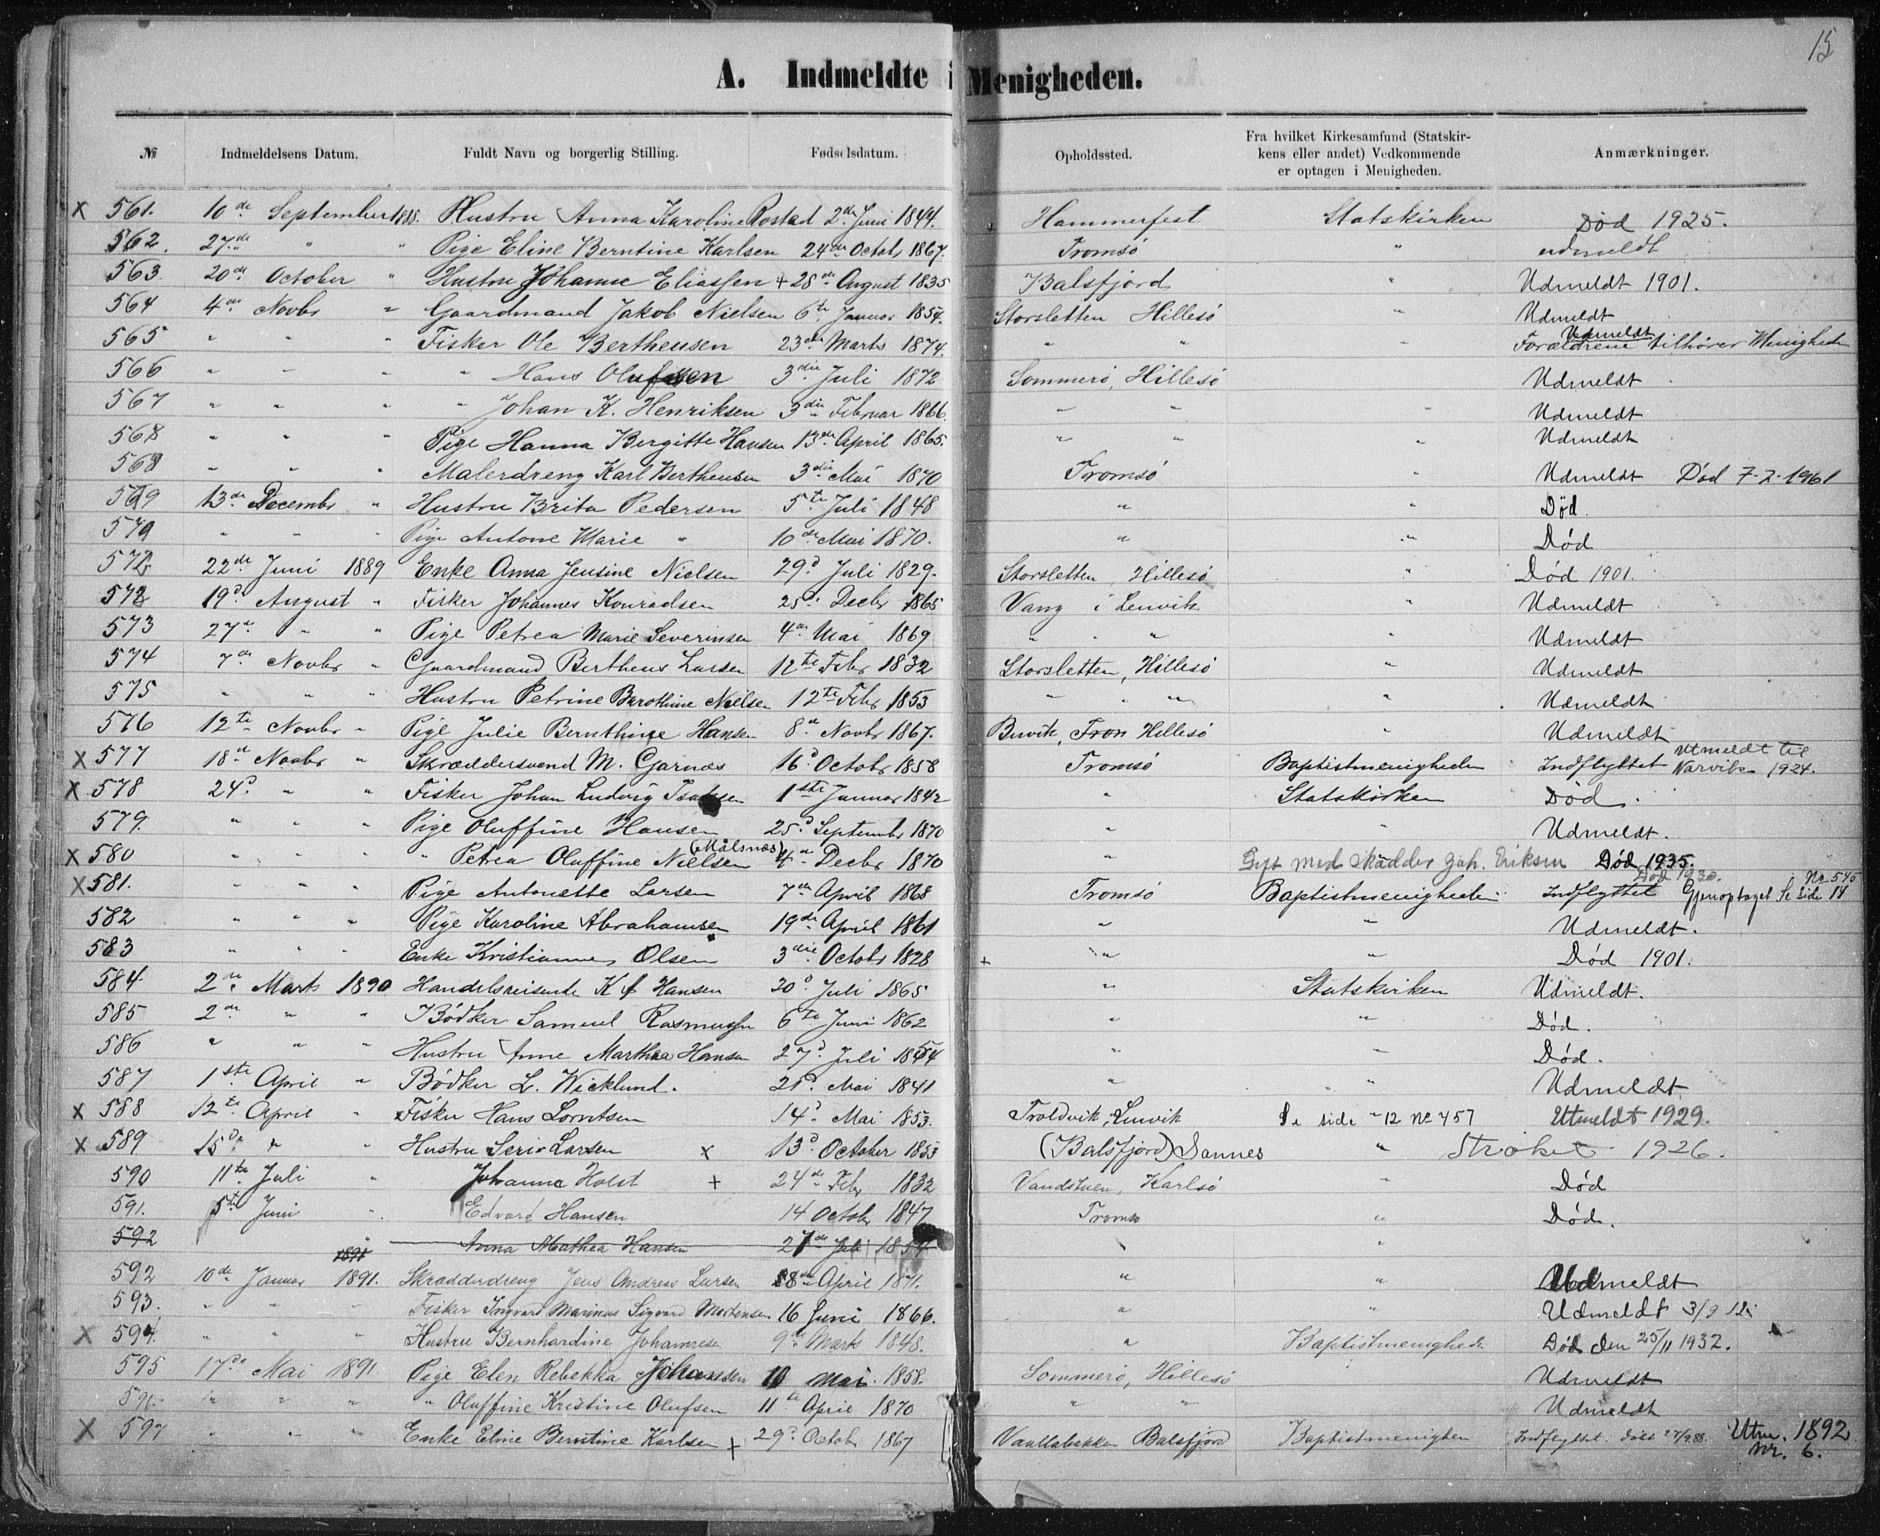 15
A. Indmeldte i Menigheden.
№ Indmeldelsens Datum. Fuldt Navn og borgerlig Stilling. Fødselsdatum. Opholdssted. Fra hvilket Kirkesamfund (Statskirkens eller andet) Vedkommende er optagen i Menigheden. Anmærkninger.
x 561. 10de September 1888. Hustru Anna Karoline Rostad 2de Juni 1844. Hammerfest Statskirken Død 1925.
562. 27de " " Pige Eline Berntine Karlsen 24de Octobr 1867. Tromsø " udmeldt
563. 20de October " Hustru Johanne Eliassen + 28de August 1835 Balsfjord " Udmeldt 1901.
564 4de Novbr " Gaardmand Jakob Nielsen 6te Januar 1854. Storsletten Hillesø " Udmeldt
565 " " " Fisker Ole Bertheusen 23de Marts 1874. " " " Udmeldt Forældrene tilhører Menigheden
566 " " " " Hans Olufsen 3die Juli 1872 Sommerø, Hillesø Udmeldt
567 " " " " Johan K. Henriksen 3die Februar 1866 " " " Udmeldt
568 " " " Pige Hanna Bergitte Hansen 13de April 1865. " " " Udmeldt
568 " " " Malerdreng Karl Bertheusen 3die Mai 1870 Tromsø " Udmeldt Død 7-2-1961
569 13de Decembr " Hustru Brita Pedersen 5te Juli 1848 " " Død.
570 " " " Pige Antone Marie " 10de Mai 1870. " " Død
572 22de Juni 1889 Enke Anna Jensine Nielsen 29d Juli 1829. Storsletten, Hillesø " Død 1901.
572 19d August " Fisker Johannes Konradsen 25d Decbr 1865 Vang i Lenvik " Udmeldt
573 27d " " Pige Petrea Marie Severinsen 4de Mai 1869 " " " Udmeldt
574 7de Novbr " Gaardmand Bertheus Larsen 12te Febr 1832 Storsletten, Hillesø " Udmeldt
575 " " " Hustru Petrine Berothine Nielsen 12te Febr 1853 " " " Udmeldt
576 12te Novbr " Pige Julie Bernthine Hansen 8d Novbr 1867. Buvik, Tron Hillesø " Udmeldt
x 577 18d Novbr " Skræddersvend M. Garnæs 16d Octobr 1858 Tromsø Baptistmenigheden Indflyttet Utmeldt til Narvik 1924.
x 578 24d " " Fisker Johan Ludvig Isaksen 1ste Januar 1842 " Statskirken Død.
579. " " " Pige Oluffine Hansen 25d Septembr 1870 " " Udmeldt.
x 580 " " " " Petrea Oluffine Nielsen (Målsnæs) 4de Decbr 1870 " Gift med skædder Joh. Eriksen Død 1935.
x 581. " " " Pige Antonette Larsen 7de April 1868 Tromsø Baptistmenigheden Indflyttet Død 1930. Gjenoptaget Se side 14 Nr 545
582 " " " Pige Karoline Abrahamsen 19de April 1861 " " Udmeldt.
583 " " " Enke Kristianne Olsen 3die Octobr 1828 + " " Død 1901.
584 2de Marts 1890 Handelsreisende K J Hansen 20d Juli 1865 " Statskirken Udmeldt.
585 2de " " Bødker Samuel Rasmussen 6te Juni 1862 " " Død.
586 " " " Hustru Anne Marthea Hansen 27d Juli 1854 " " Død.
587 1ste April " Bødker L. Wicklund. 21d. Mai 1841 " " Udmeldt.
x 588 12te April " Fisker Hans Lorntsen 14d Mai 1853. Troldvik, Lenvik Se side 12 No 457 Utmeldt 1929.
x 589 15de " " Hustru Seri Larsen x 13d October 1853 (Balsfjord) Sannes " Strøket 1926.
590 11te Juli " Johanna Holst + 24de Febr 1832 Vandstuen, Karlsø " Død
591. 5te Juni " Edvard Hansen 14 Octobr 1847 Tromsø " Død.
592 " Anna Mathea Hansen 27de Juli 1854 " "
592 10de Januar 1891 1891. Skrædderdreng Jens Andreas Larsen 8de April 1871. " " Udmeldt
593. " " " Fisker Ingvard Marinus Sigvard Mortensen 16 Juni 1866. " " Udmeldt 3/9 12.
x 594. " " " Hustru Bernhardine Johannesen 9de Marts 1848. " Baptistmenighede Død den 25/11 1932.
595 17de Mai 1891 Pige Elen Rebekka Johansen 10 Mai. 1858. Sommerø, Hillesø Udmeldt
596. " " " " Oluffine Kristine Olufsen 11te April 1870 " " Udmeldt
x 597 " " " Enke Eline Berntine Karlsen + 29d Octobr 1867 Balsfjord Baptistmenigheden Indflyttet. døbt 27/9 88. Utm. 1892 nr. 6.